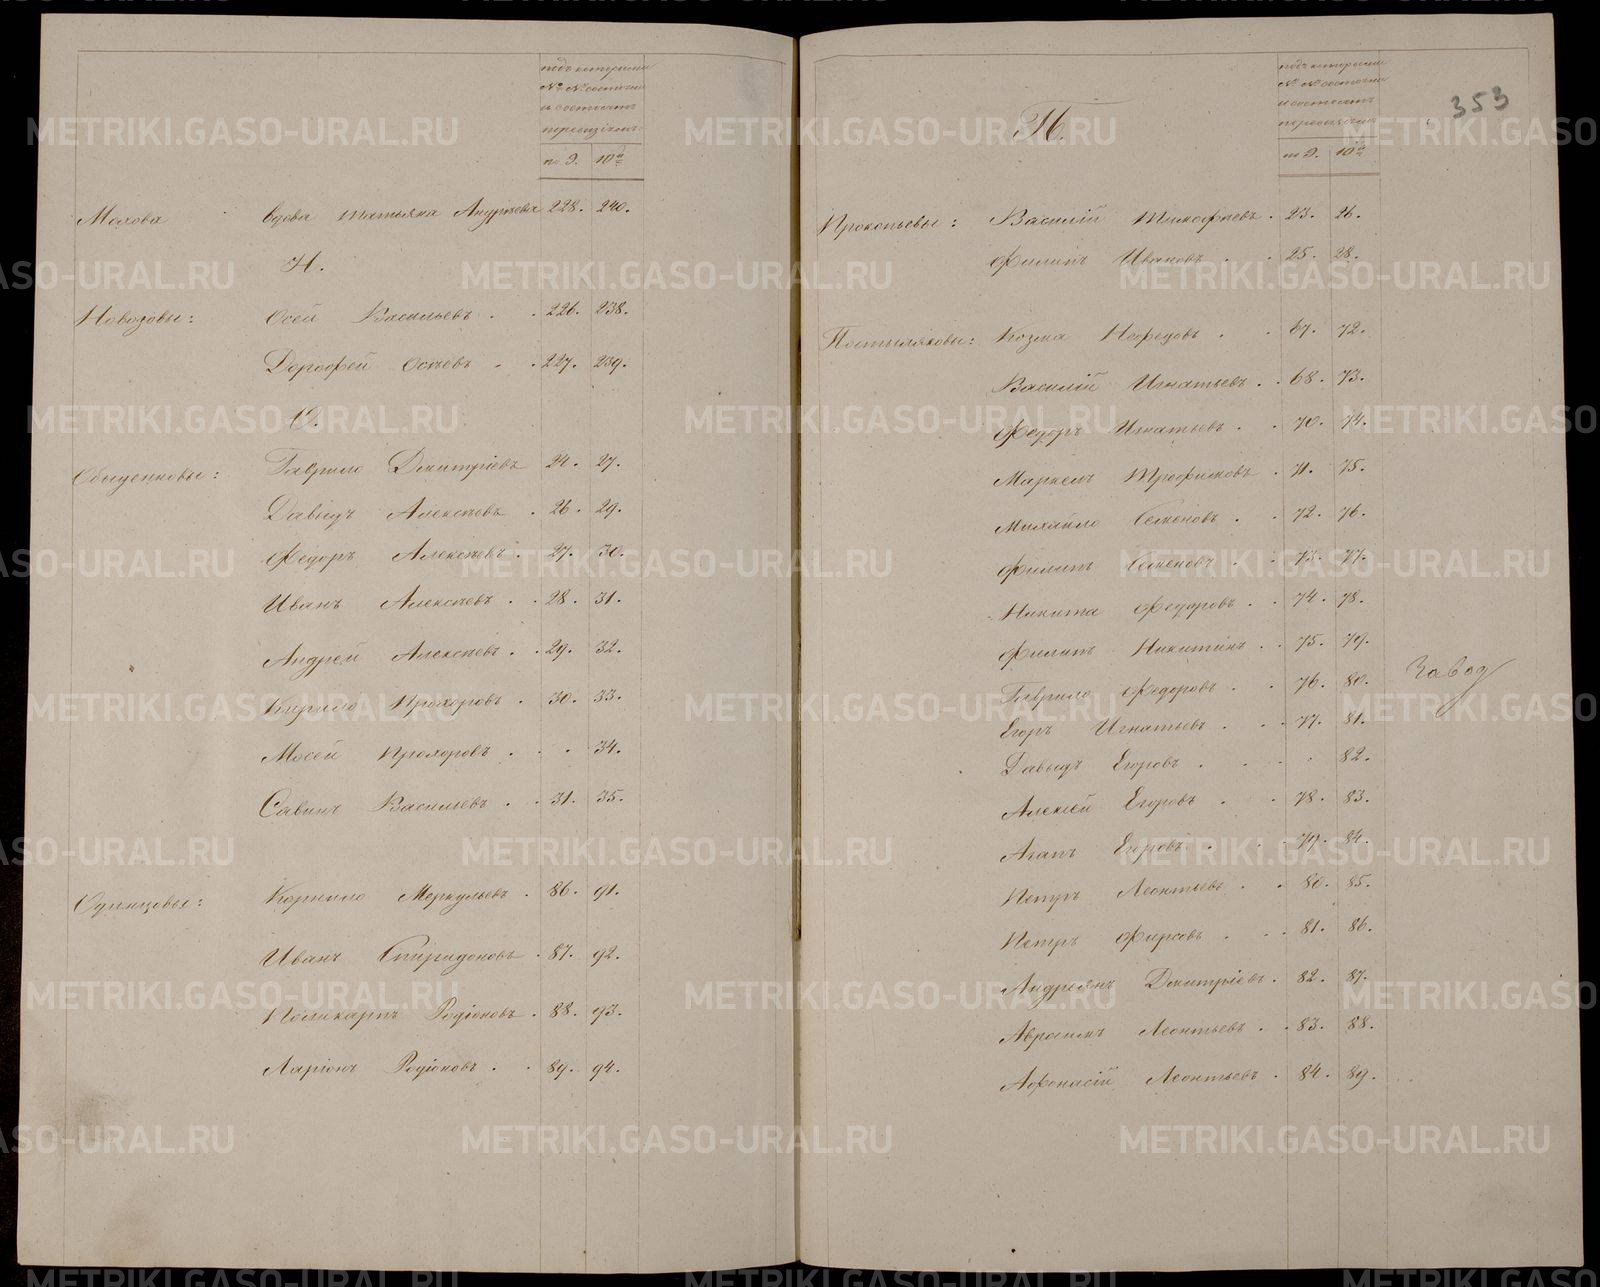 подъ которыми
№ № состояли
и состоятъ
по ревизіямъ
по 9. 10й
Мохова вдова Татьяна Андреева 228. 240.
Н.
Новозовы: Осей Васильевъ . . 226. 238.
Дорофей Осеевъ . . 227. 239.
О.
Обыденновы: Гаврило Дмитріевъ 24. 27.
Давыдъ Алексѣевъ . 26. 29.
Федоръ Алексѣевъ . 27. 30.
Иванъ Алексѣевъ . . 28. 31.
Андрей Алексѣевъ . . 29. 32.
Кирило Прохоровъ . 30. 33.
Мосей Прохоровъ . . . 34.
Савинъ Васильевъ . . 31. 35.
Одинцовы: Корнило Меркульевъ . 86. 91.
Иванъ Спиридоновъ . 87. 92.
Поликарпъ Родіоновъ . 88. 93.
Ларіонъ Родіоновъ . . 89. 94.
353
подъ которыми
№ № состояли
и состоятъ
по ревизіямъ
по 9. 10й
П.
Прокопьевы: Василій Тимофѣевъ . 23. 26.
Филипъ Ивановъ . . 25. 28.
Постыляковы: Козма Нефедовъ . . 67. 72.
Василій Игнатьевъ . . 68. 73.
Федоръ Игнатьевъ . . 70. 74.
Маркелъ Трофимовъ . 71. 75.
Михайло Семеновъ . . 72. 76.
Филипъ Семеновъ . . 73. 77.
Никита Федоровъ . . 74. 78.
Филипъ Никитинъ . . 75. 79.
Гаврило Федоровъ . . 76. 80.
Завод
Егоръ Игнатьевъ . . . 77. 81.
Давыдъ Егоровъ . . . . 82.
Алексѣй Егоровъ . . 78. 83.
Агапъ Егоровъ . . . 79. 84.
Петръ Леонтьевъ . . 80. 85.
Петръ Фирсовъ . . . 81. 86.
Андреянъ Дмитріевъ . 82. 87.
Авраамъ Леонтьевъ . . 83. 88.
Афонасій Леонтьевъ . 84. 89.
METRIKI.GASO-URAL.RU